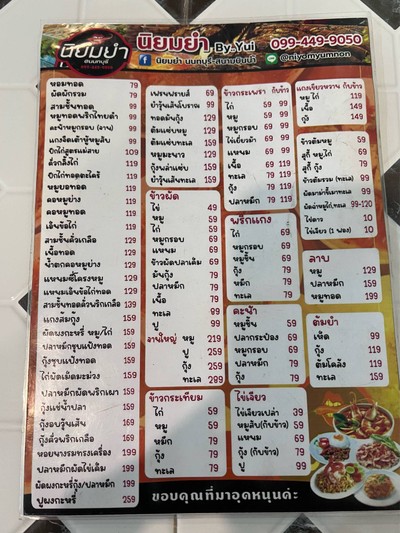 นิยมยำ
นิยมยำ By.Yui 099-449-9050
นิยมยำ นนทบุรี-สนามบินน้ำ @niyomyumnon
หอมทอด 79
ผัดผักรวม 79
สามชั้นทอด 99
หมูทอดพริกไทยดำ 99
คะน้าหมูกรอบ (จาน) 99
แกงจืดเต้าหู้หมูสับ 99
ปีกไก่สูตรแม่สาย 109
คั่วกลิ้งไก่ 119
ปีกไก่ทอดตะไคร้ 119
หมูยอทอด 119
คอหมูย่าง 119
คอหมูทอด 119
เอ็นข้อไก่ 119
สามชั้นคั่วเกลือ 129
เนื้อทอด 129
น้ำตกคอหมูย่าง 129
แหนมซี่โครงหมู 129
แหนมเอ็นข้อไก่ทอด 129
สามชั้นทอดคั่วพริกเกลือ 139
แกงส้มกุ้ง 159
ผัดผงกะหรี่ หมู/ไก่ 159
ปลาหมึกชุบแป้งทอด 159
กุ้งชุบแป้งทอด 159
ไก่ผัดเม็ดมะม่วง 159
ปลาหมึกผัดพริกเผา 159
กุ้งแช่น้ำปลา 159
กุ้งอบวุ้นเส้น 169
กุ้งคั่วพริกเกลือ 169
หอยนางรมทรงเครื่อง 199
ปลาหมึกผัดไข่เค็ม 199
ผัดผงกะหรี่กุ้ง/ปลาหมึก 199
ปูผงกะหรี่ 259
เฟรนฟรายส์ 69
ยำวุ้นเส้นโบราณ 99
ทอดมันกุ้ง 129
ต้มแซ่บหมู 129
ต้มแซ่บทะเล 159
หมูมะนาว 129
กุ้งพล่าแซ่บ 159
ยำวุ้นเส้นทะเล 159
ข้าวผัด
ไข่ 49
หมู 59
ไก่ 59
หมูกรอบ 69
แหนม 69
ข้าวผัดปลาเค็ม 69
มันกุ้ง 79
ปลาหมึก 79
เนื้อ 79
กุ้ง 79
ทะเล 99
ปู 99
จานใหญ่ หมู 219
ปู 259
กุ้ง 259
ทะเล 299
ข้าวกระเทียม
ไก่ 59
หมู 59
หมึก 79
กุ้ง 79
ทะเล 79
ข้าวกะเพรา กับข้าว
ไก่ 59 99
หมู 59 99
หมูกรอบ 69 99
ไข่เยี่ยวม้า 69 99
แหนม 69 99
เนื้อ 69 119
ทะเล 79 119
กุ้ง 79 119
ปลาหมึก 79 119
พริกแกง
ไก่ 69
หมูกรอบ 69
หมูชิ้น 69
กุ้ง 79
หมึก 79
ทะเล 79
คะน้า
หมูชิ้น 59
ปลากระป๋อง 69
หมูกรอบ 69
ปลาหมึก 79
กุ้ง 79
ไข่เจียว
ไข่เจียวเปล่า 39
หมูสับ(กับข้าว) 79
แหนม 69
กุ้ง (กับข้าว) 79
ปู 99
แกงเขียวหวาน กับข้าว
หมู/ไก่ 119
เนื้อ 149
กุ้ง 149
ข้าวต้มหมู 59
สุกี้ หมู/ไก่ 69
สุกี้ กุ้ง 79
ข้าวต้มรวม (ทะเล) 99
ผัดมาม่าขี้เมาทะเล 99
ผัดฉ่าหมู/ไก่,ทะเล 99-120
ไข่ดาว 10
ไข่เจียว (1 ฟอง) 10
ลาบ
หมู 129
ปลาหมึก 159
หมูทอด 199
ต้มยำ
เห็ด 99
กุ้ง 119
ต้มโคล้ง 119
ทะเล 159
ขอบคุณที่มาอุดหนุนค่ะ